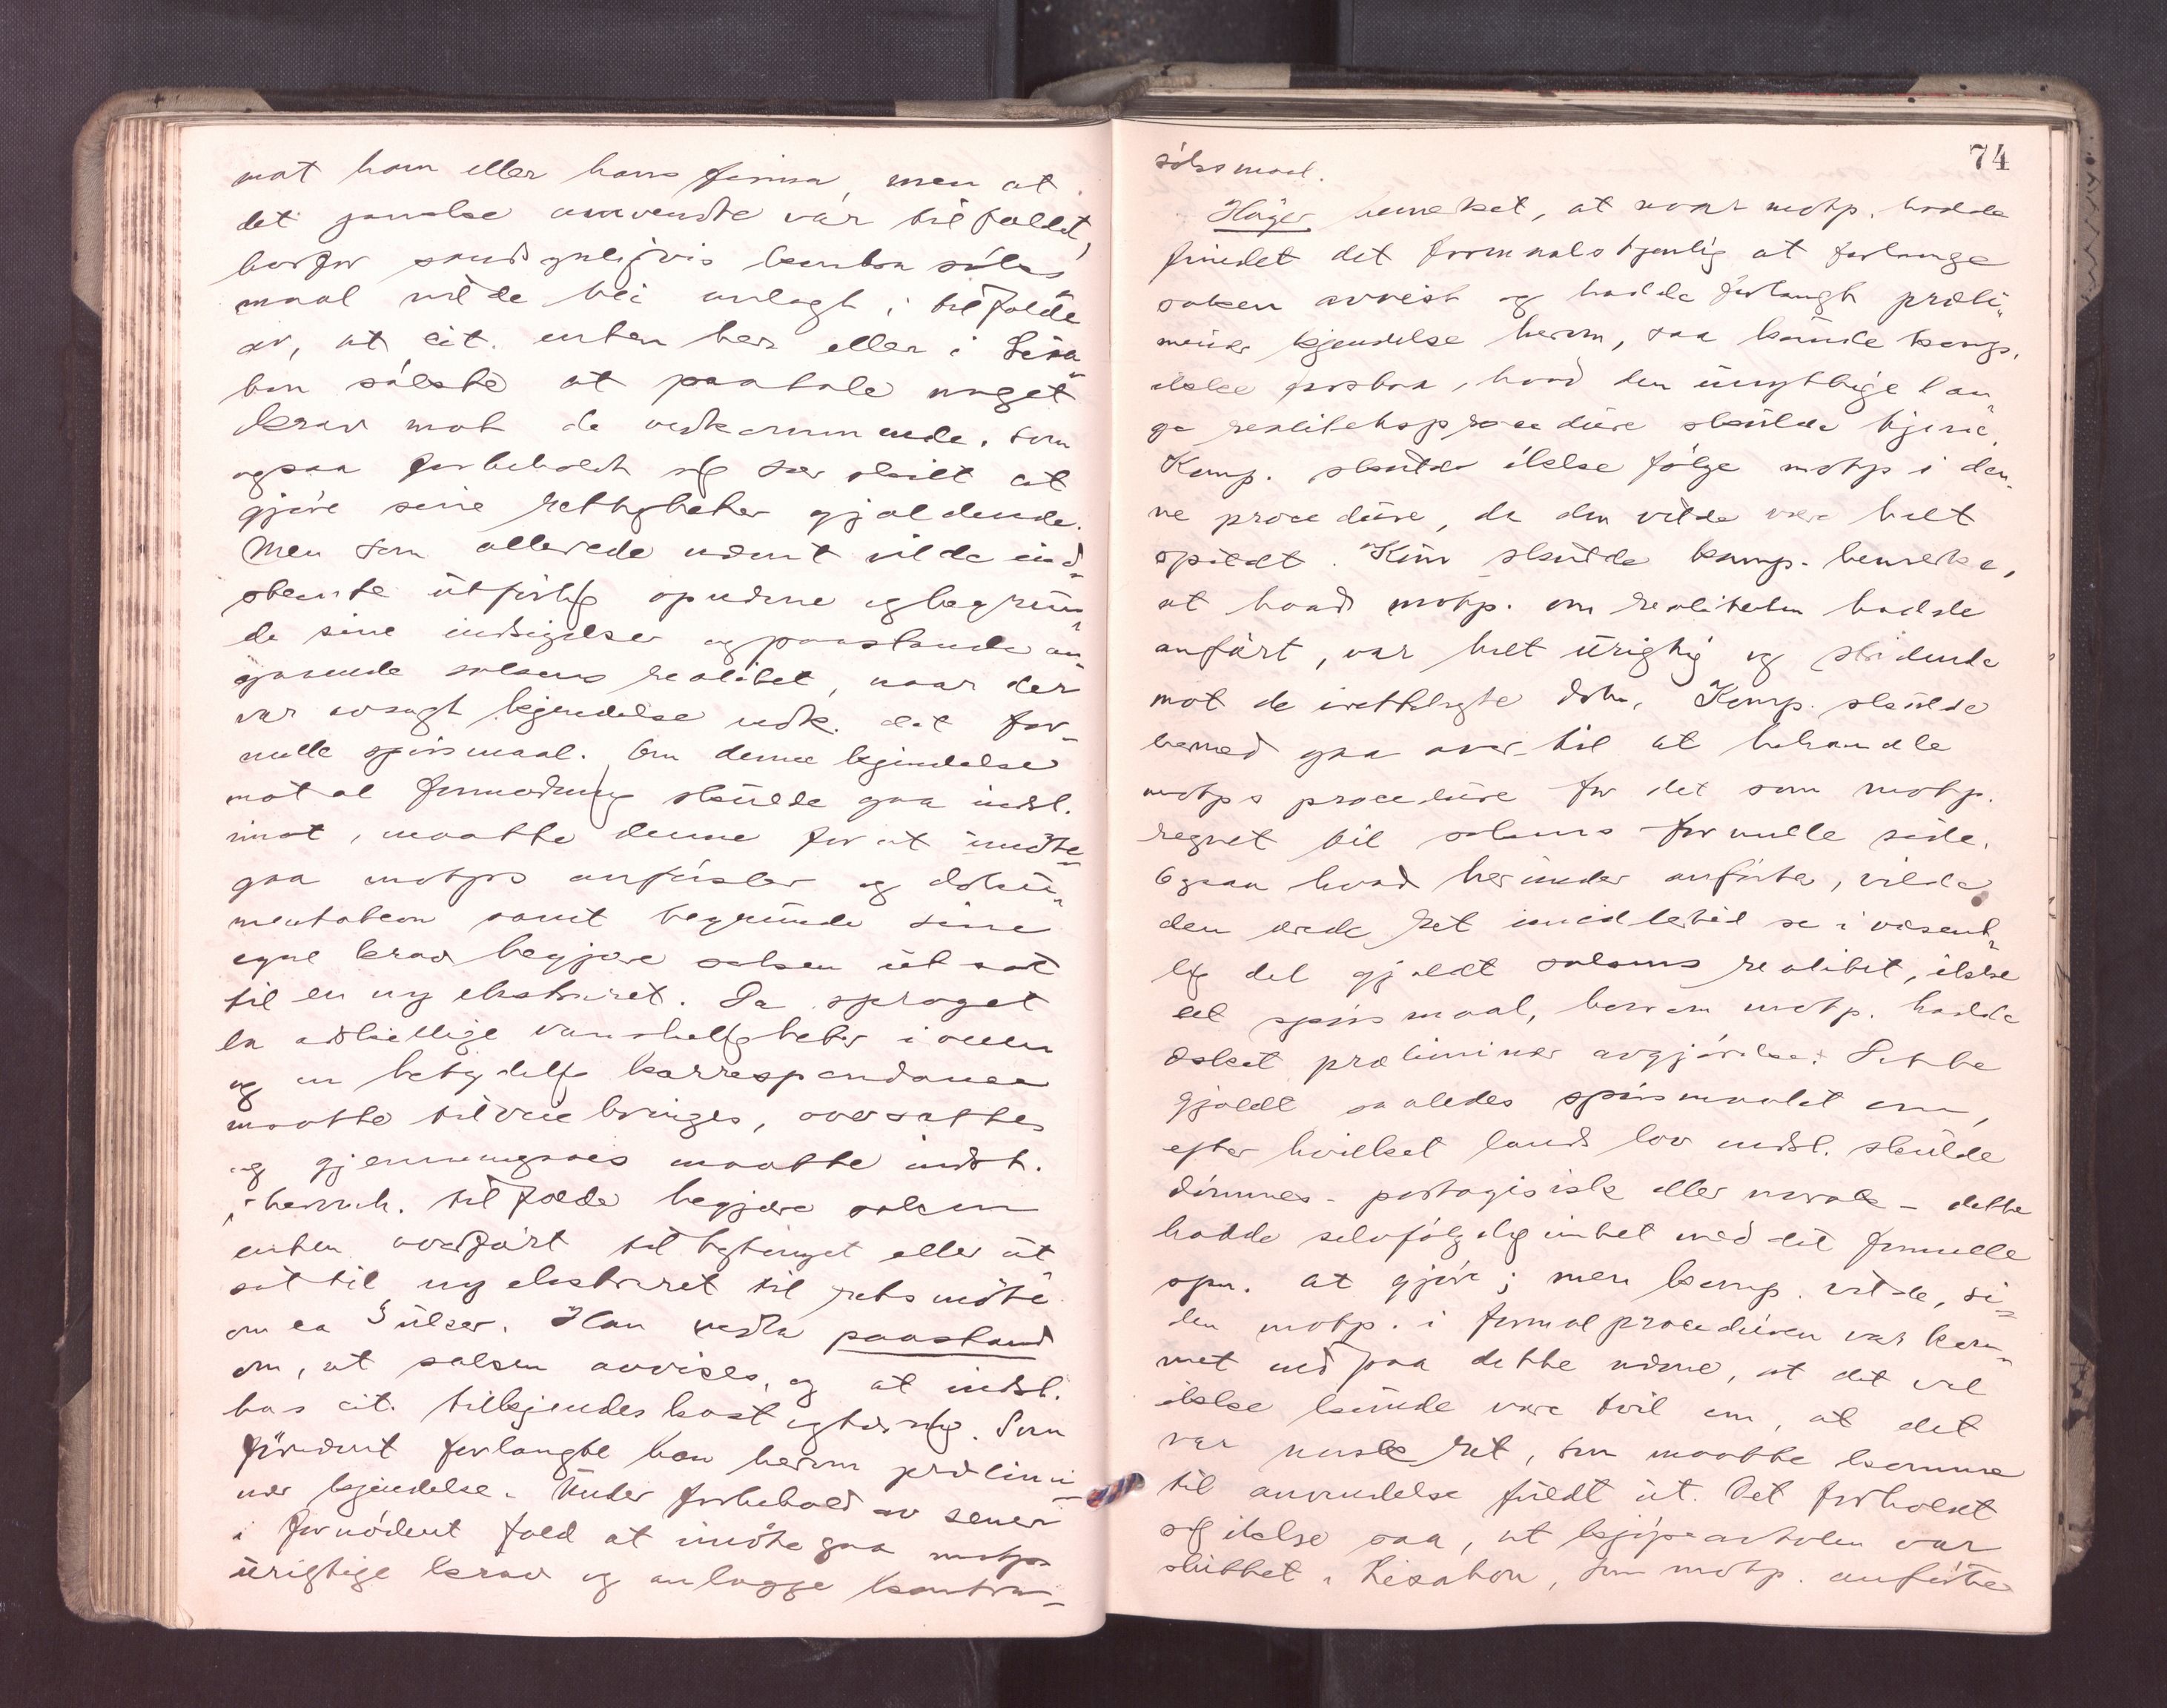 mot ham eller hans firma, men at
det ganske omvendte var tilfældet,
hvorfor sandsynligvis kontrasöks„
maal vilde bli anlagt i tilfælde
av, at cit. enten her eller i Lissa„
bon sökte at paatale noget
krav mot de vedkommende, som
ogsaa forbeholdt sig særskilt at
gjöre sine rettigheter gjældende.
Men som allerede nævnt vilde ind„
stevnte utförlig opredne og begrun„
de sine indsigelser og paastande an„
gaaende sakens realitet, naar der
var avsagt kjendelse vedk. det for„
melle spörsmaal. Om denne kjendelse
mot al formodning skulde gaa indst.
imot, maatte denne for at imöte„
gaa motps anförsler og doku„
mentation samt begrunde sine
egne krav begjære saken utsat
til en ny ekstraret. Da sproget
la adskillige vanskeligheter i veien
og en betydelig korrespondance
maatte tilveiebringes, oversættes
og gjennemgaaes maatte indst.
i herv. tilfælde begjære saken
enten overfört til bytinget eller ut
sat til ny ekstraret til retsmöte
om ca 3 uker. Han nedla paastand
om, at saken avvises, og at indst.
hos cit. tilkjendes kost og tæring. Som
förnævnt forlangte han herom prælimi„
nær kjendelse. Under forbehold av senere
i fornödent fald at imötegaa motps
urigtige krav og anlægge kontra„
74
söksmaal.
Häger bemerket, at naar motp. hadde
fundet det formaalstjenlig at forlange
saken avvist og hadde forlangt præli„
minær kjendelse herom, saa kunde komp.
ikke forstaa, hvad den unyttige lan„
ge realitetsprocedure skulde tjene.
Komp. skulde ikke fölge motp i den„
ne procedure, da den vilde være helt
spildt. Kun skulde komp. bemerke,
at hvad motp. om realiteten hadde
anfört, var helt urigtig og stridende
mot de irettelagte dok. Komp. skulde
hermed gaa over til at behandle
motps procedure for det som motp.
regnet til sakens formelle side.
Ogsaa hvad herunder anförtes, vilde
den ærede ret imidlertid se i væsent„
lig del gjaldt sakens realitet, ikke
det spörsmaal, hvorom motp. hadde
æsket præliminær avgjörelse. Dette
gjaldt saaledes spörsmaalet om,
efter hvilket lands lov indst. skulde
dömmes – portugisisk eller norsk – dette
hadde selvfölgelig intet med det formelle
spm. at gjöre; men komp. vilde, si„
den motp. i formalproceduren var kom„
met ind paa dette emne, at det vel
ikke kunde være tvil om, at det
var norsk ret, som maatte komme
til anvendelse fuldt ut. Det forholdt
sig ikke saa, at kjöpeavtalen var
sluttet i Lissabon, som motp. anförte